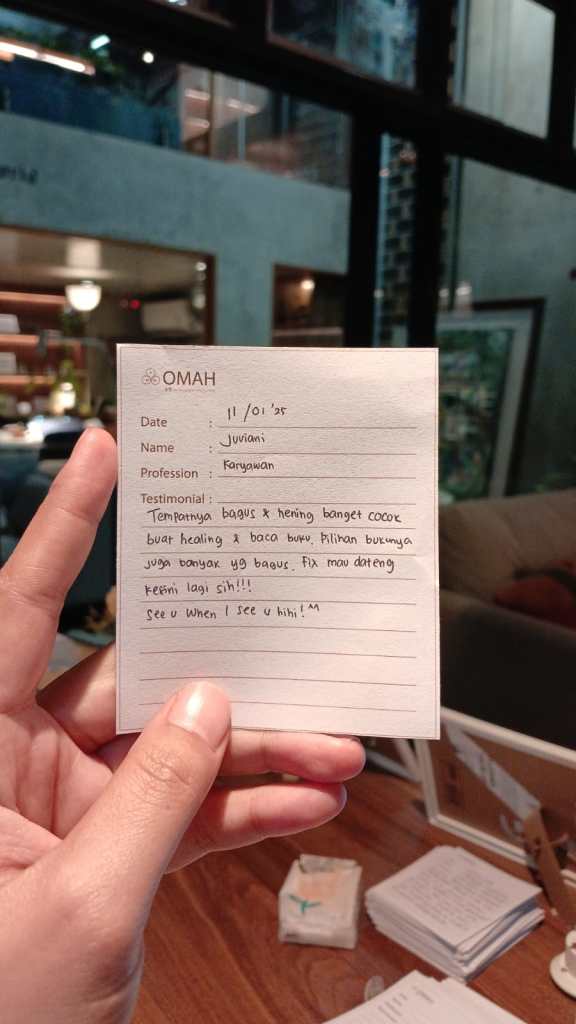 OMAH
Date : 11/01 '25
Name : Juviani
Profession : Karyawan
Testimonial :
Tempatnya bagus & hening banget cocok
buat healing & baca buku. Pilihan bukunya
juga banyak yg bagus. Fix mau dateng
kesini lagi sih!!!
See u when I see u hihi! ^^